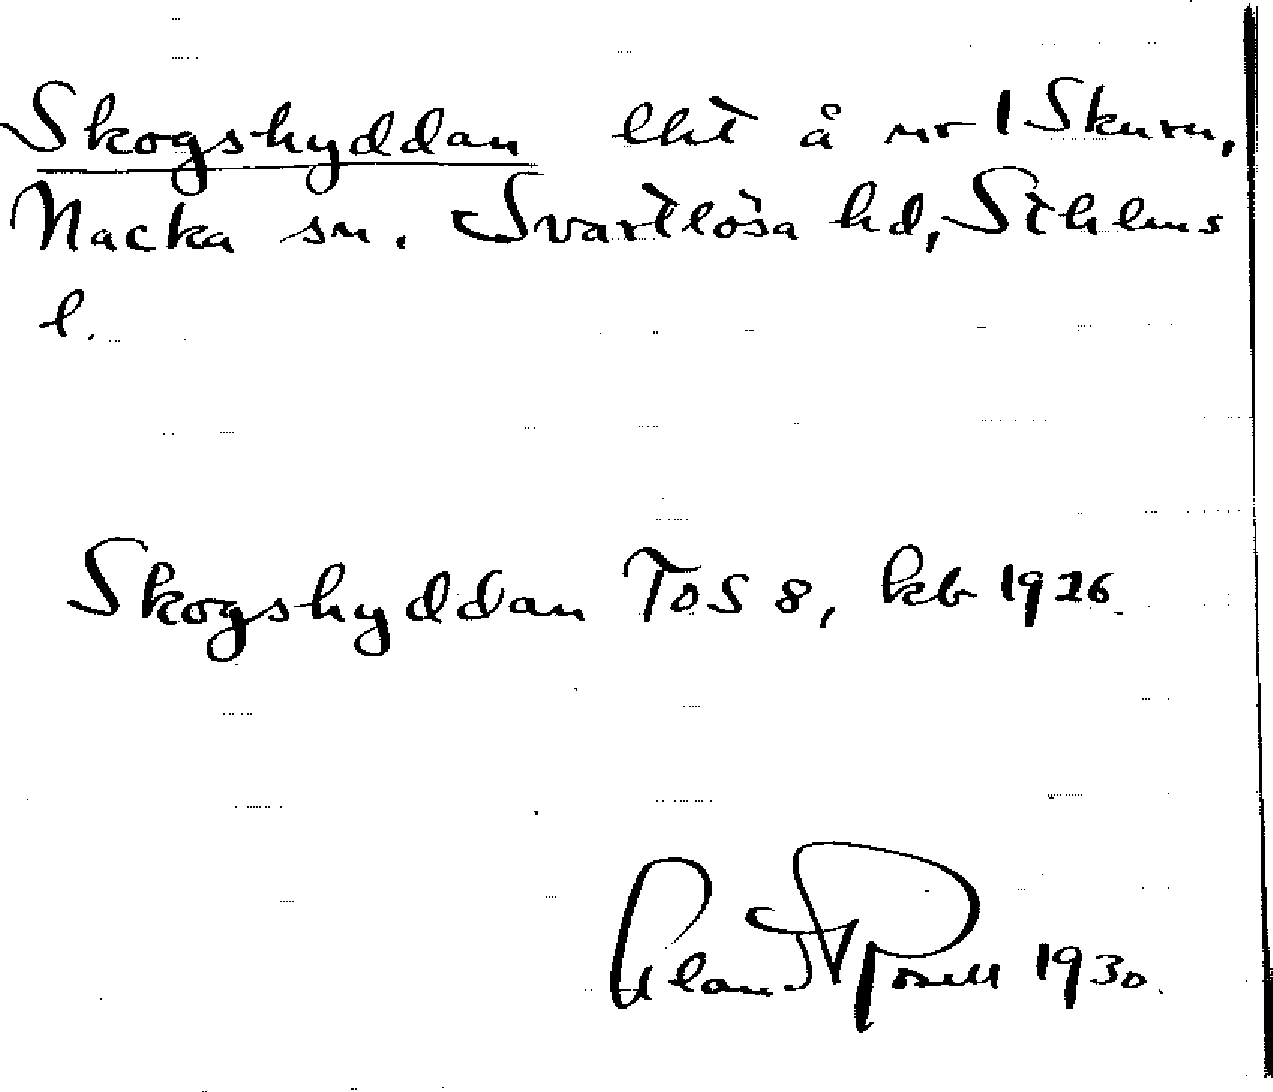 Skogshyddan lht å nr 1 Skuru,
Nacka sn. Svartlösa hd, Sthlms
l.
Skogshyddan TOS 8, kb 1926.
1930.